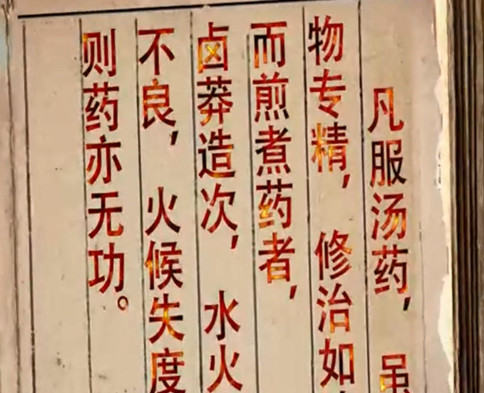 凡服汤药，
物专精，修治如
而煎煮药者，
卤莽造次，水火
不良，火候失度
则药亦无功。